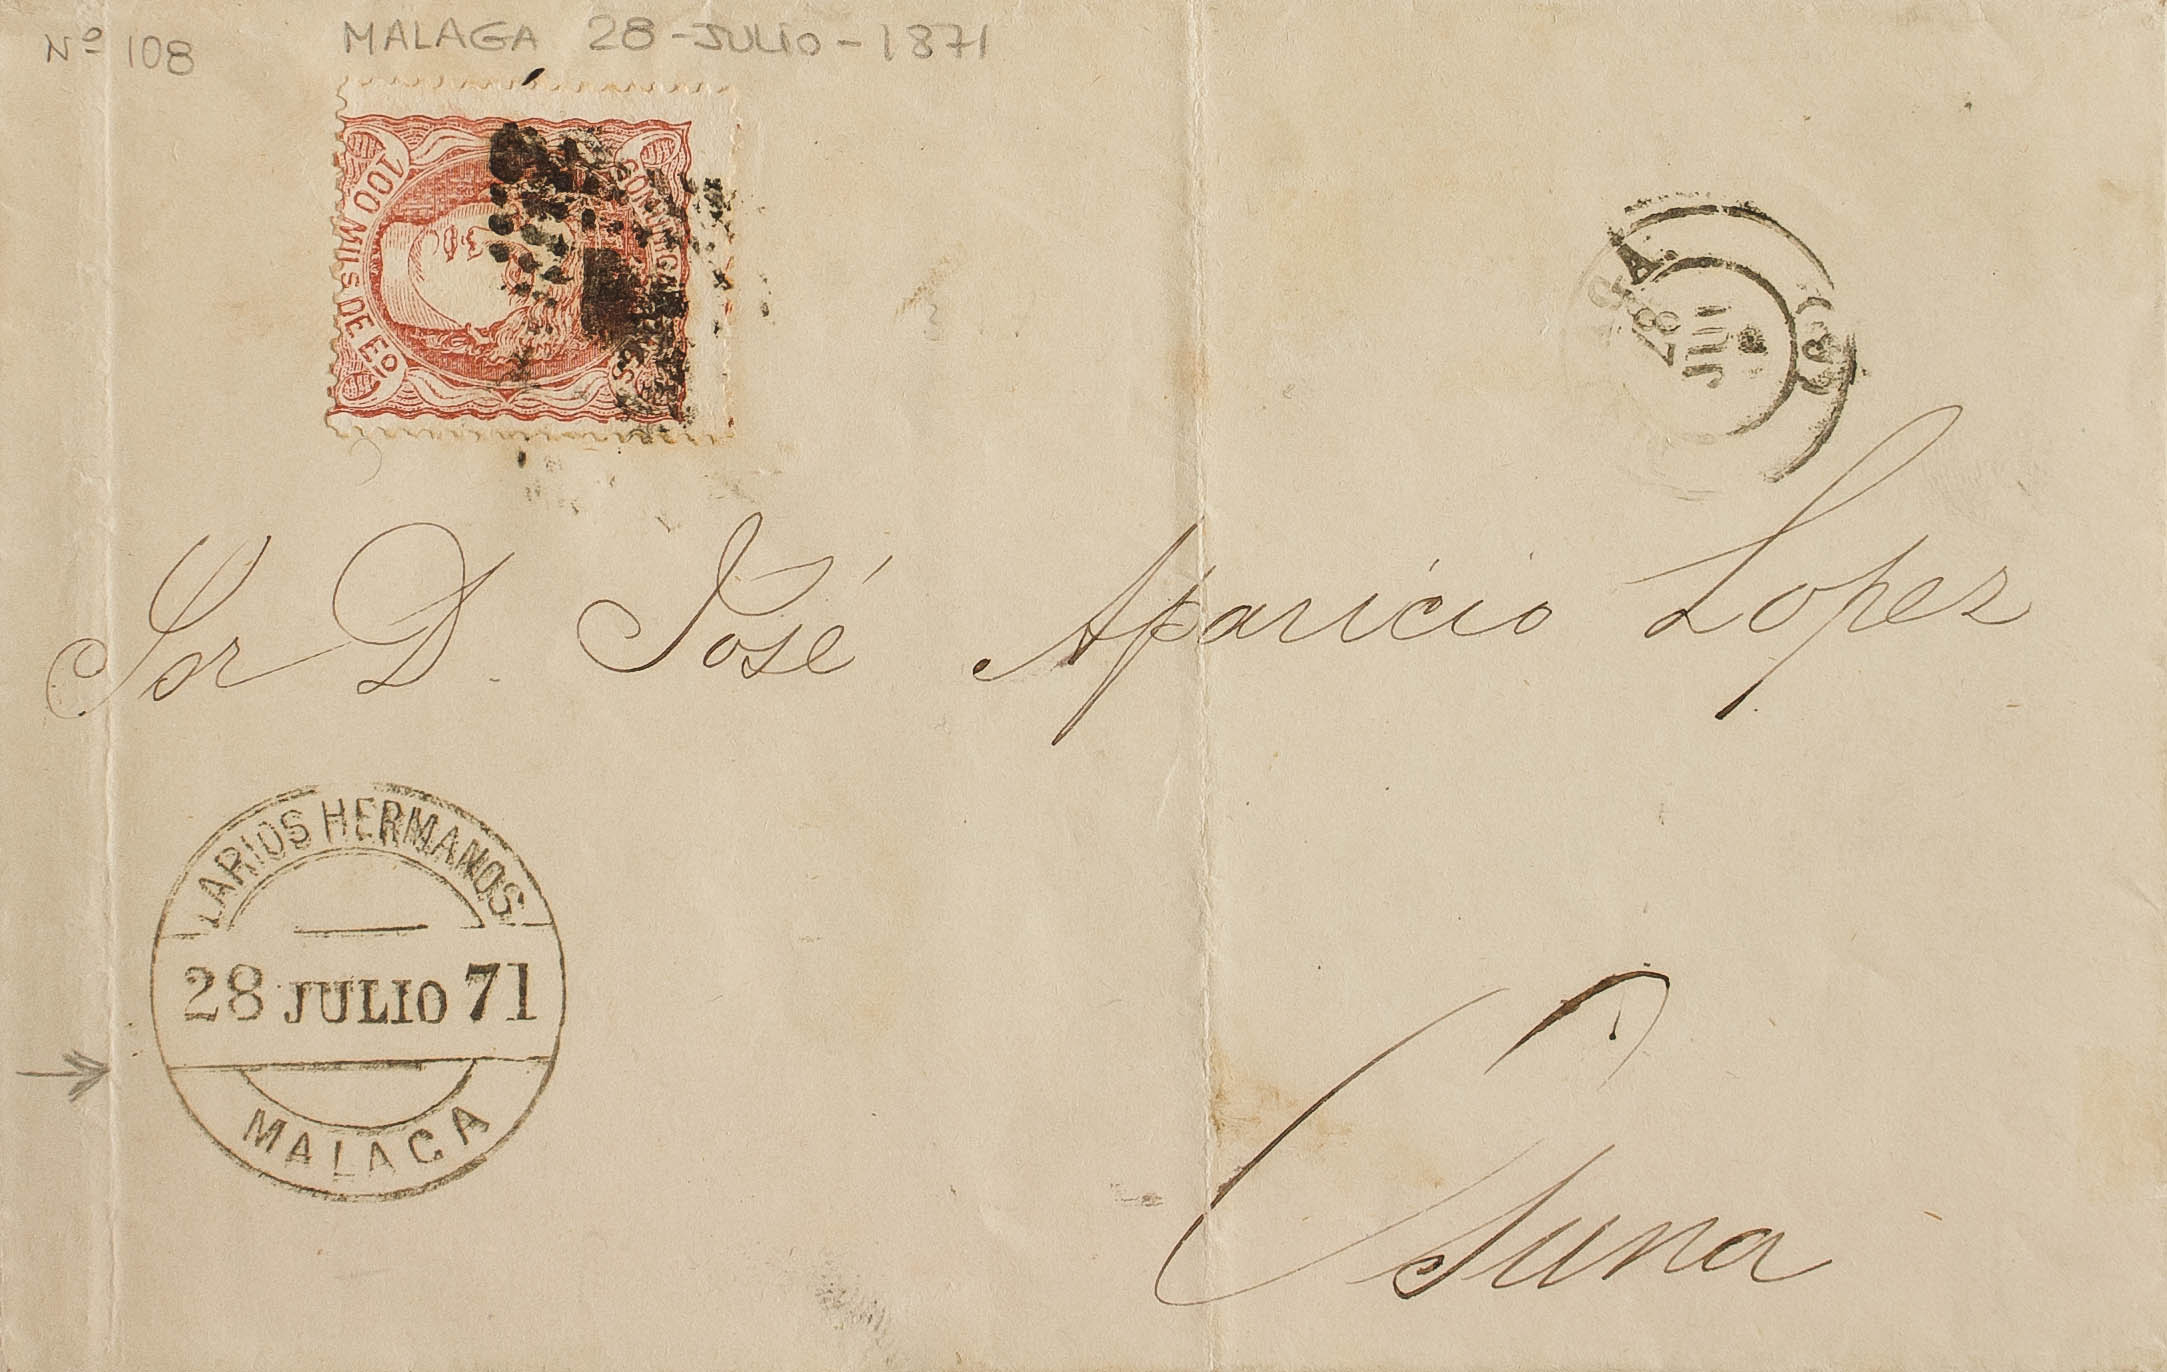 Nº 108
MALAGA 28-JULIO-1871
100 MILS DE Eº
COMUNICA
28
JUL
(3)
Sor D. José Aparicio Lopez
LARIOS HERMANOS
28 JULIO 71
MALAGA
Osuna